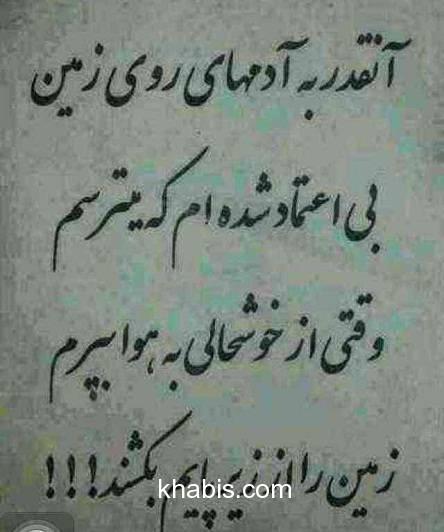 آنقدر به آدمهای روی زمین
بی اعتماد شده ام که میترسم
وقتی از خوشحالی به هوا بپرم
زمین را از زیر پایم بکشند!!!
khabis.com